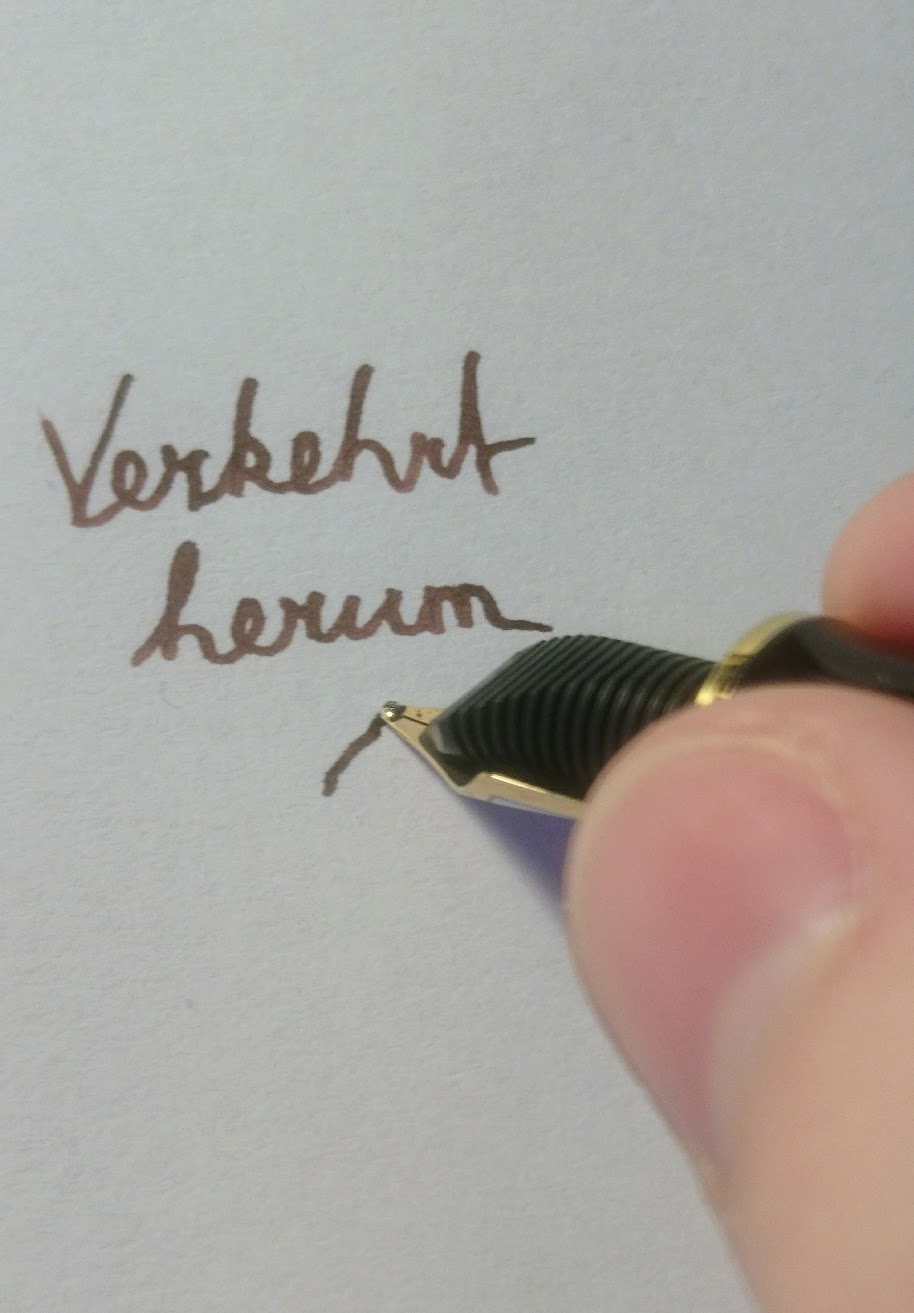 Verkehrt
herum